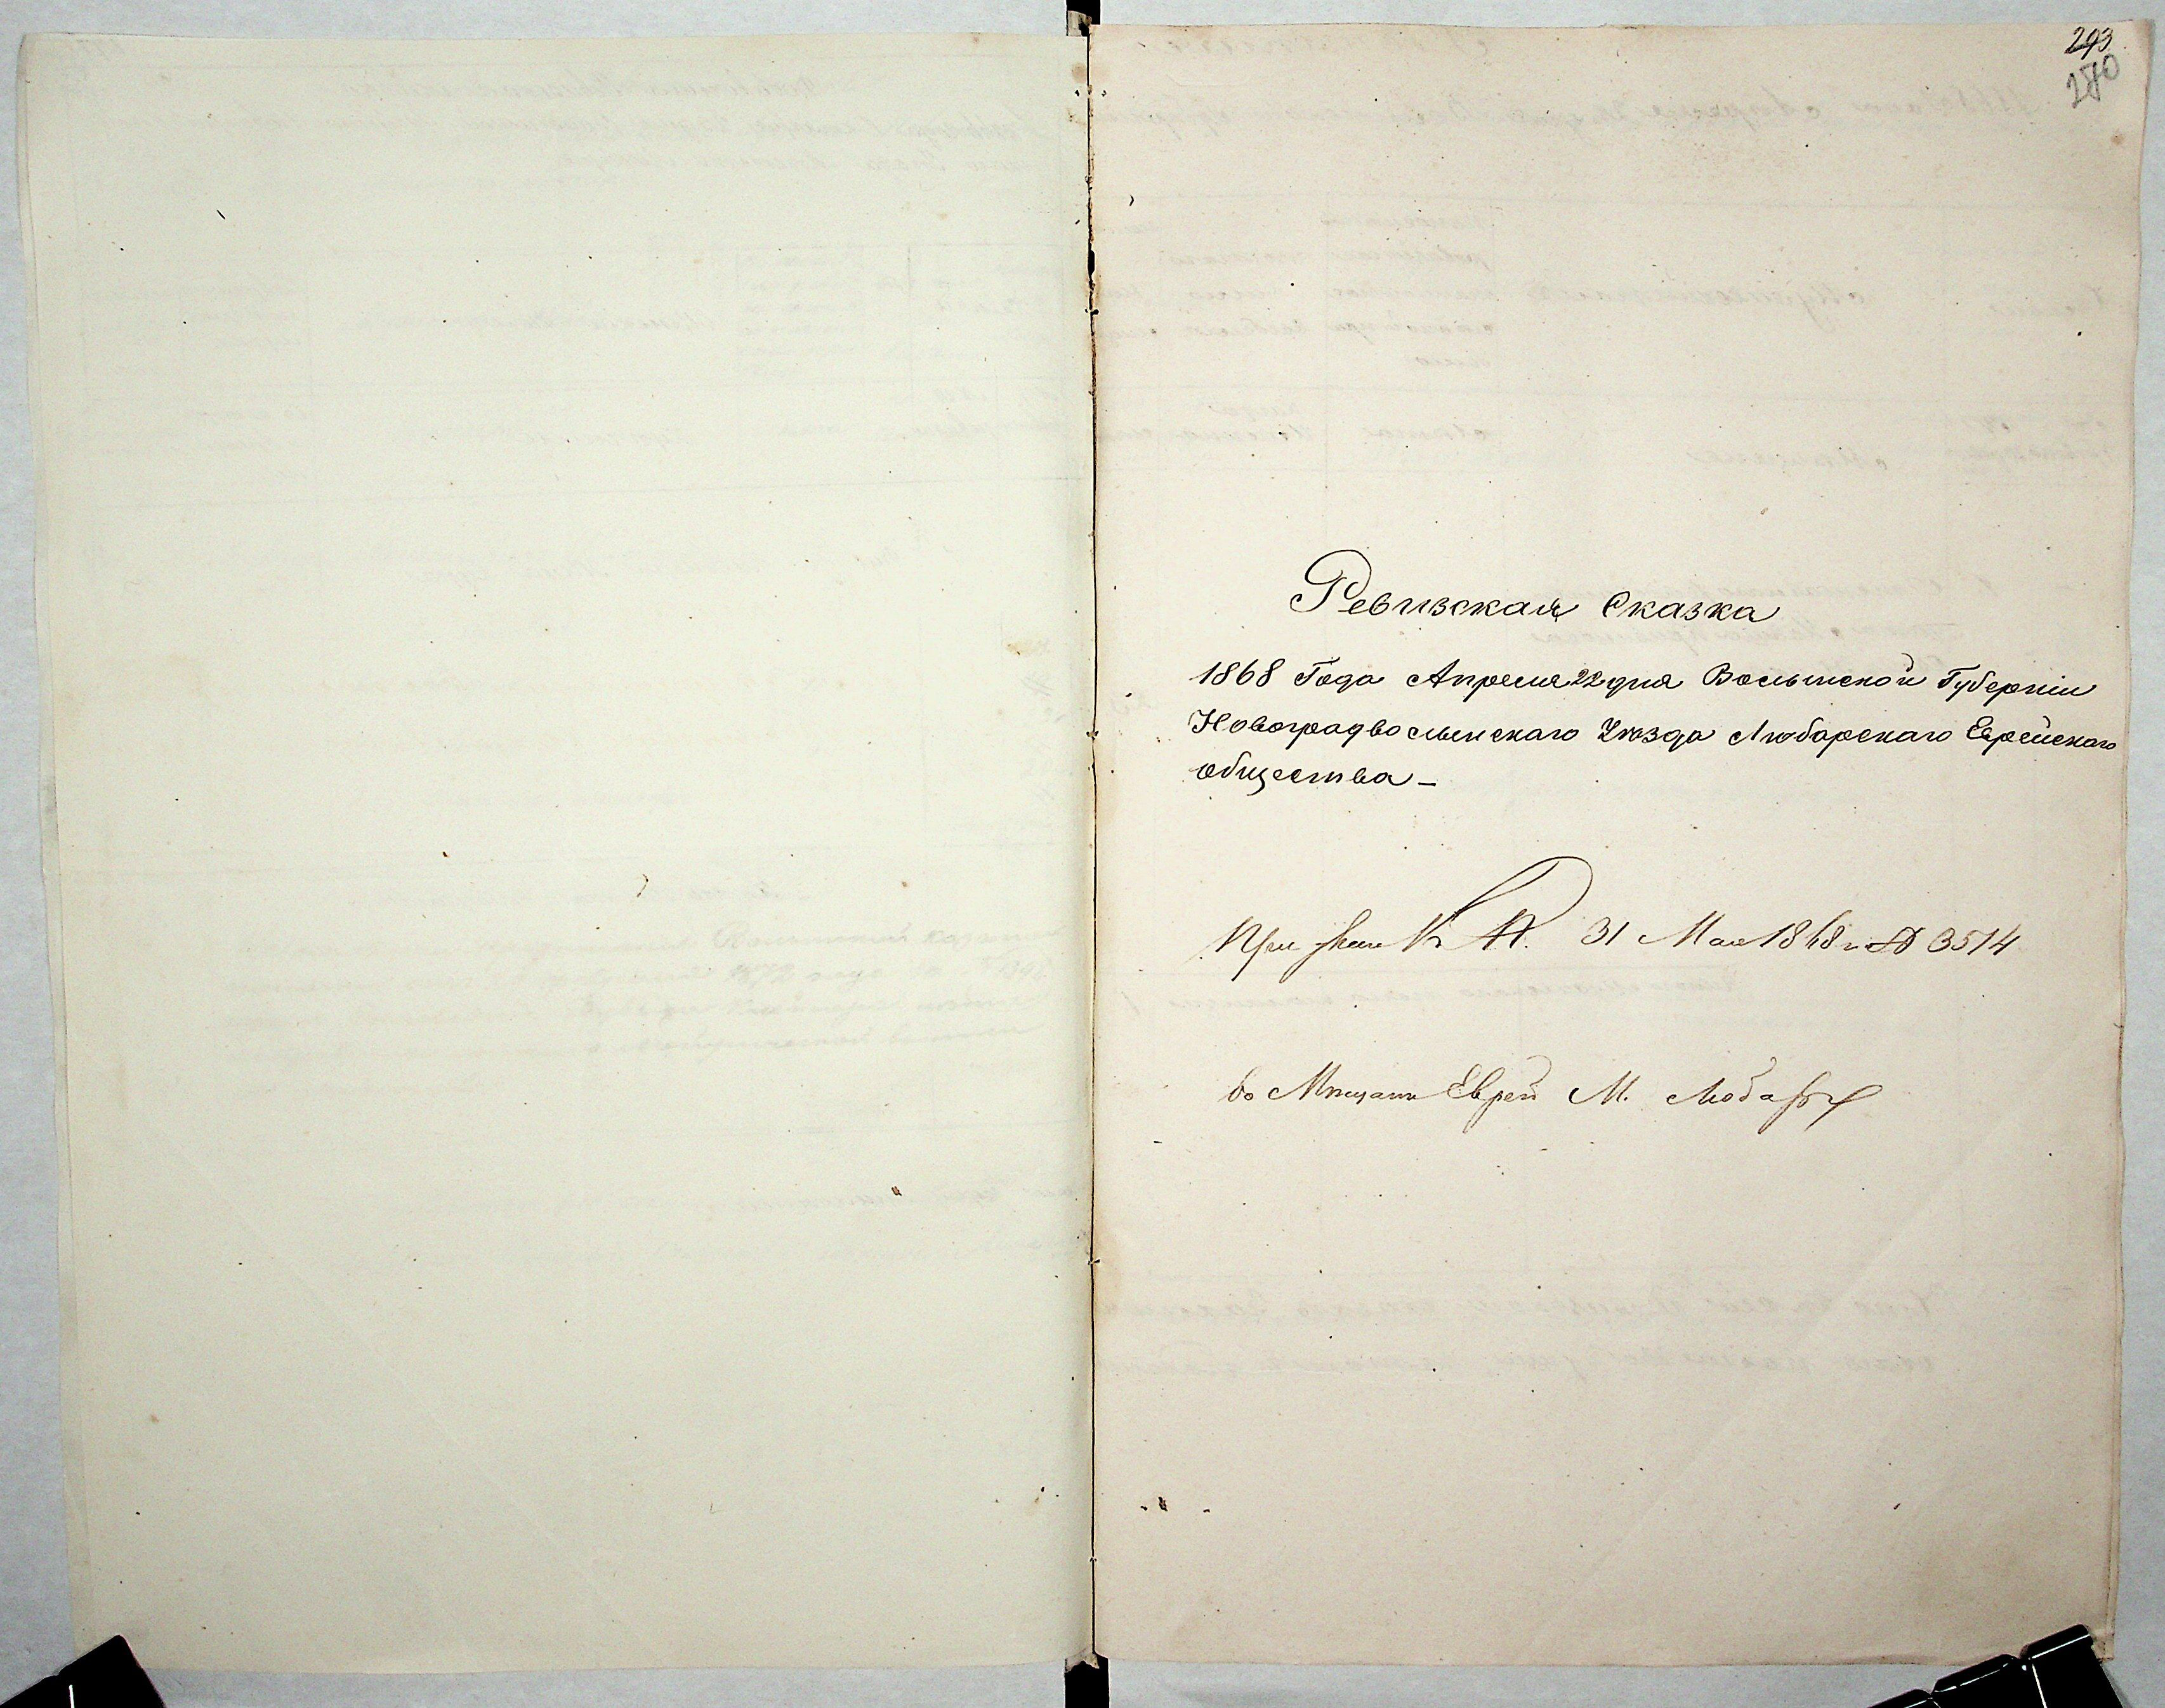 293
280
Ревизская Сказка
1868 Года Апреля 22 дня Волынской Губерніи
Новоградволынскаго Уѣзда Любарскаго Еврейскаго
общества –
При Указѣ К. П. 31 Мая 1868 г. № 3514
во Мѣщане Еврей М. Любаръ